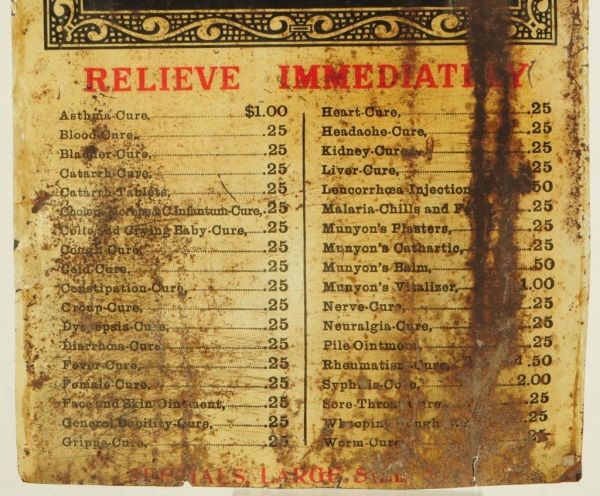 RELIEVE IMMEDIATELY
Asthma-Cure, $1.00
Blood-Cure, .25
Bladder-Cure, .25
Catarrh-Cure, .25
Catarrh-Tablets, .25
Cholera-Morbus & C. Infantum-Cure, .25
Colic and Crying Baby-Cure, .25
Cough-Cure, .25
Cold-Cure, .25
Constipation-Cure, .25
Croup-Cure, .25
Dyspepsia-Cure, .25
Diarrhœa-Cure, .25
Fever-Cure, .25
Female-Cure, .25
Face and Skin Ointment, .25
General Debility-Cure, .25
Grippe-Cure, .25
Heart-Cure, .25
Headache-Cure, .25
Kidney-Cure, .25
Liver-Cure, .25
Leucorrhœa Injection .50
Malaria-Chills and .25
Munyon's Plasters, .25
Munyon's Cathartic, .25
Munyon's Balm, .50
Munyon's Vitalizer, 1.00
Nerve-Cure, .25
Neuralgia-Cure, .25
Pile Ointment, .25
Rheumatism-Cure, .50
Syphilis-Cure, 2.00
Sore-Throat-Cure, .25
Whooping Cough .25
Worm-Cure .25
SPECIALS, LARGE SIZE